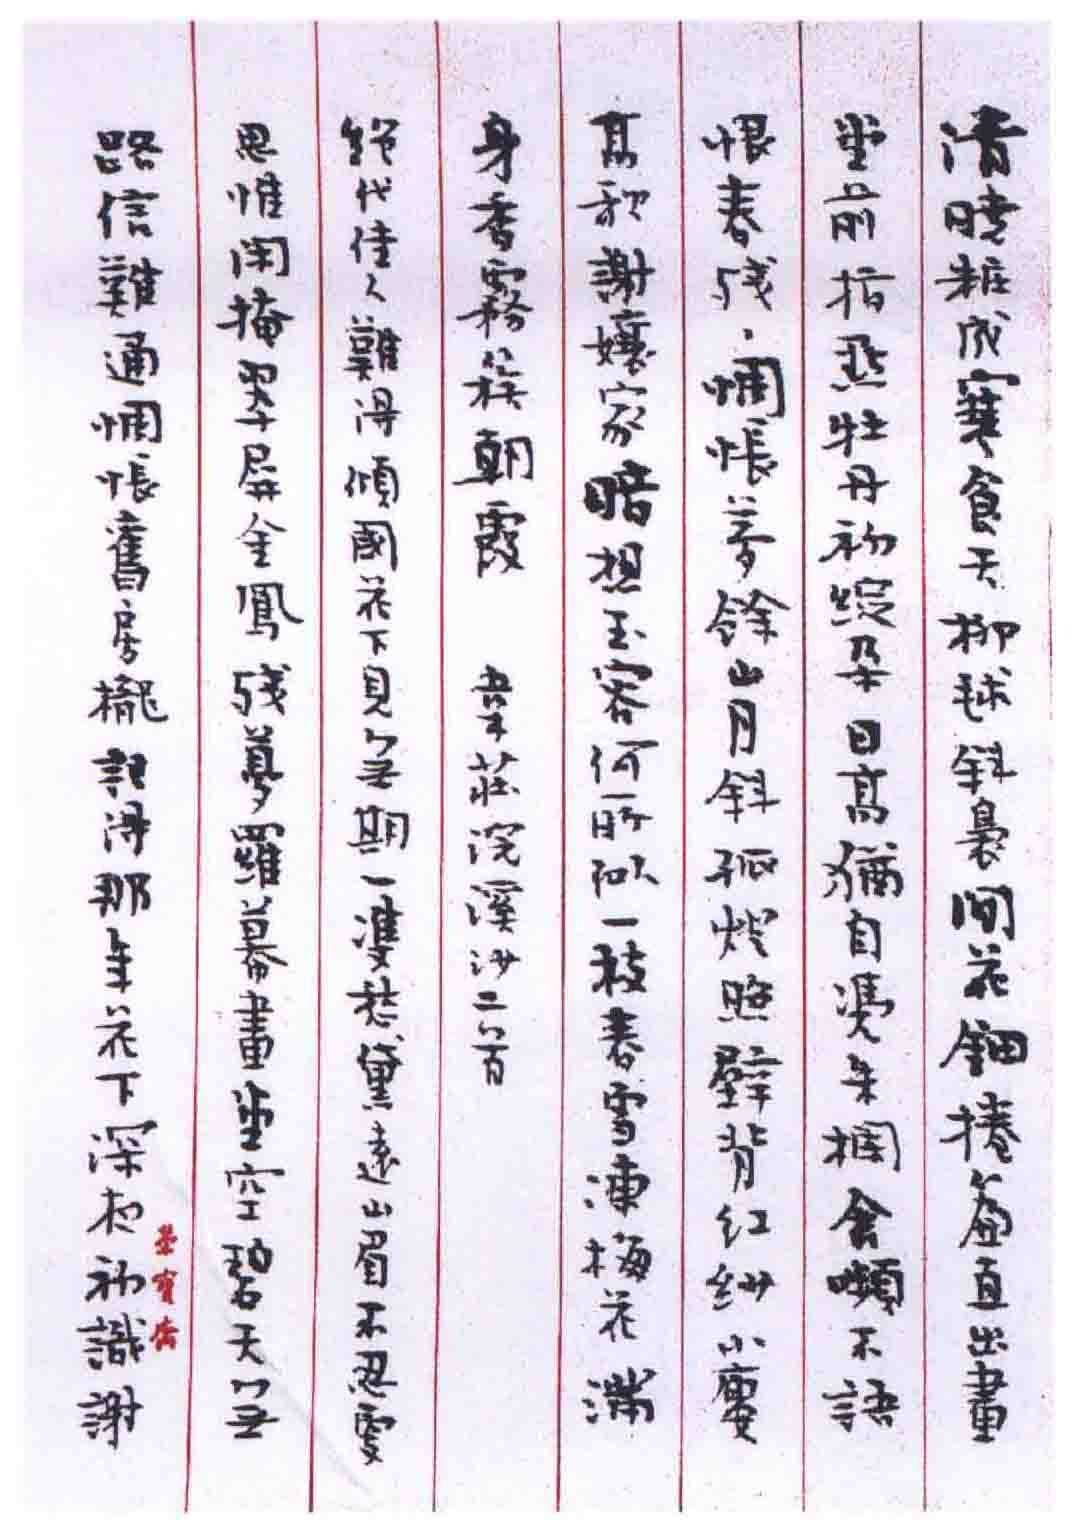 清曉粧成寒食天柳毬斜裊間花鈿捲簾直出畫
堂前指點牡丹初綻朵日高猶自凭朱欄含嚬不語
恨春殘、惆悵夢餘山月斜孤燈照壁背紅紗小樓
高歌謝娘家暗想玉容何所似一枝春雪凍梅花滿
身香霧簇朝霞 韋莊浣溪沙二首
絕代佳人難得傾國花下見無期一雙愁黛遠山眉不忍更
思惟閑掩翠屏金鳳殘夢羅幕畫堂空碧天無
路信難通惆悵舊房櫳記得那年花下深夜初識謝
榮寶齋